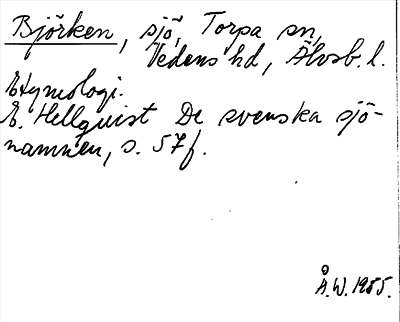 Björken, sjö, Torpa sn,
Vedens hd, Älvsb. l.
Etymologi.
E. Hellquist De svenska sjö-
namnen, s. 57f.
Å.W. 1955.